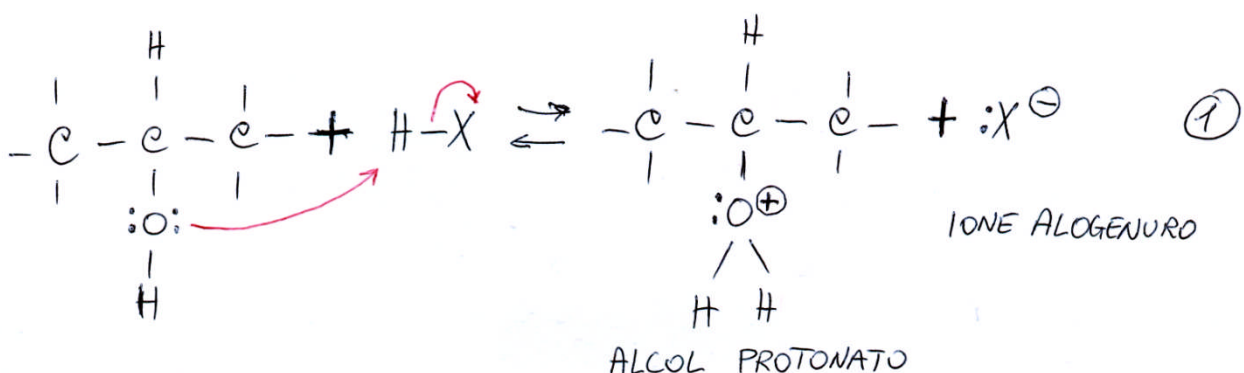 H H
- C - C - C - + H - X ⇌ - C - C - C - + :X ⊖ ①
:O: :O ⊕
H H H
IONE ALOGENURO
ALCOL PROTONATO